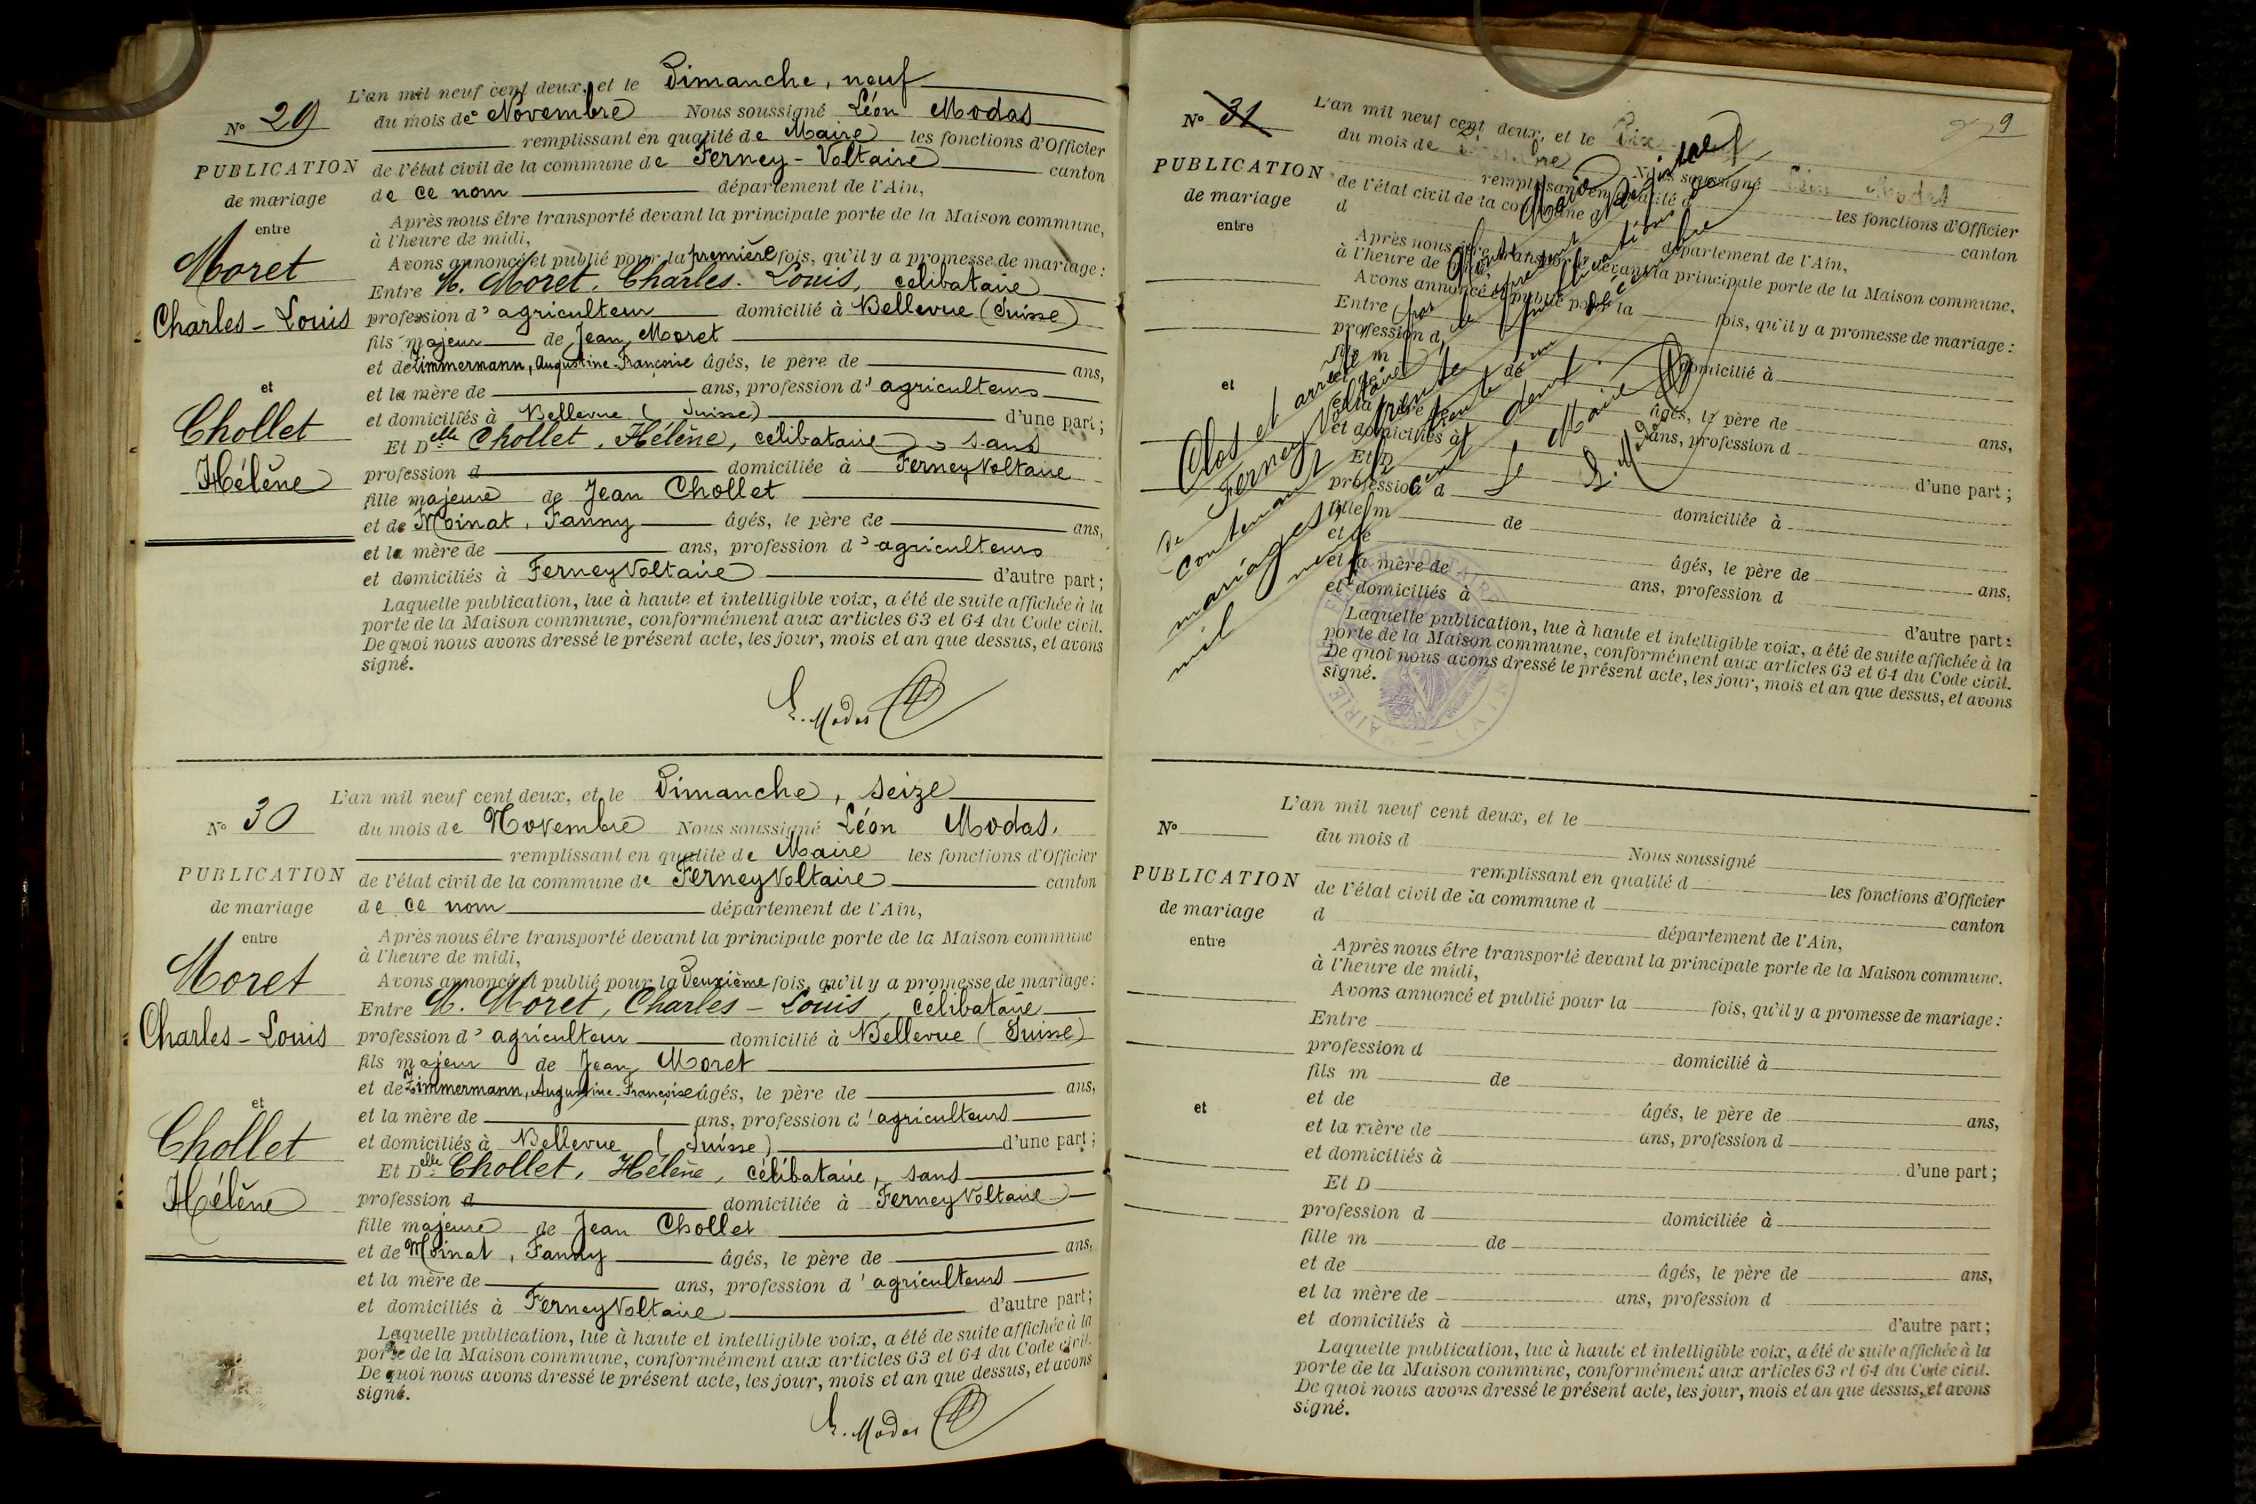 L'an mil neuf cent deux, et le Dimanche, neuf
N° 29
du mois de Novembre Nous soussigné Léon Modas
remplissant en qualité de Maire les fonctions d'Officier
PUBLICATION
de l'état civil de la commune de Ferney-Voltaire canton
de mariage
de ce nom département de l'Ain,
entre
Après nous être transporté devant la principale porte de la Maison commune,
à l'heure de midi,
Avons annoncé et publié pour la première fois, qu'il y a promesse de mariage :
Moret
Entre M. Moret, Charles-Louis, célibataire
Charles-Louis
profession d'agriculteur domicilié à Bellevue (Suisse)
fils majeur de Jean Moret
et de Zimmermann, Augustine-Françoise âgés, le père de ans,
et
et la mère de ans, profession d'agriculteurs
et domiciliés à Bellevue (Suisse) d'une part ;
Chollet
Et Delle Chollet, Hélène, célibataire, sans
Hélène
profession d domiciliée à Ferney Voltaire
fille majeure de Jean Chollet
et de Moinat, Fanny âgés, le père de ans,
et la mère de ans, profession d'agriculteurs
et domiciliés à Ferney Voltaire d'autre part ;
Laquelle publication, lue à haute et intelligible voix, a été de suite affichée à la
porte de la Maison commune, conformément aux articles 63 et 64 du Code civil.
De quoi nous avons dressé le présent acte, les jour, mois et an que dessus, et avons
signé.
L. Modas
L'an mil neuf cent deux, et le Dimanche, seize
N° 30
du mois de Novembre Nous soussigné Léon Modas,
remplissant en qualité de Maire les fonctions d'Officier
PUBLICATION
de l'état civil de la commune de Ferney Voltaire canton
de mariage
de ce nom département de l'Ain,
entre
Après nous être transporté devant la principale porte de la Maison commune
à l'heure de midi,
Avons annoncé et publié pour la Deuxième fois, qu'il y a promesse de mariage :
Moret
Entre M. Moret, Charles-Louis, célibataire
Charles-Louis
profession d'agriculteur domicilié à Bellevue (Suisse)
fils majeur de Jean Moret
et de Zimmermann, Augustine-Françoise âgés, le père de ans,
et
et la mère de ans, profession d'agriculteurs
et domiciliés à Bellevue (Suisse) d'une part ;
Chollet
Et Delle Chollet, Hélène, célibataire, sans
Hélène
profession d domiciliée à Ferney Voltaire
fille majeure de Jean Chollet
et de Moinat, Fanny âgés, le père de ans,
et la mère de ans, profession d'agriculteurs
et domiciliés à Ferney Voltaire d'autre part ;
Laquelle publication, lue à haute et intelligible voix, a été de suite affichée à la
porte de la Maison commune, conformément aux articles 63 et 64 du Code civil.
De quoi nous avons dressé le présent acte, les jour, mois et an que dessus, et avons
signé.
L. Modas
9
N° 31
L'an mil neuf cent deux, et le Dix
du mois de Nous soussigné Léon Modas
remplissant en qualité d les fonctions d'Officier
PUBLICATION
de l'état civil de la commune d canton
de mariage
d département de l'Ain,
entre
Après nous être transporté devant la principale porte de la Maison commune,
à l'heure de midi,
Avons annoncé et publié pour la fois, qu'il y a promesse de mariage :
Entre
profession d domicilié à
fils m de
et
et de âgés, le père de ans,
et la mère de ans, profession d
et domiciliés à d'une part ;
Et D
profession d domiciliée à
fille m de
et de âgés, le père de ans,
et la mère de ans, profession d
et domiciliés à d'autre part :
Laquelle publication, lue à haute et intelligible voix, a été de suite affichée à la
porte de la Maison commune, conformément aux articles 63 et 64 du Code civil.
De quoi nous avons dressé le présent acte, les jour, mois et an que dessus, et avons
signé.
Clos et arrêté par Nous Maire
de Ferney Voltaire le présent Registre
contenant trente publications de
mariages, le trente un décembre
mil neuf cent deux.
Le Maire
L. Modas
MAIRIE DE FERNEY-VOLTAIRE (AIN)
L'an mil neuf cent deux, et le
N°
du mois d Nous soussigné
remplissant en qualité d les fonctions d'Officier
PUBLICATION
de l'état civil de la commune d canton
de mariage
d département de l'Ain,
entre
Après nous être transporté devant la principale porte de la Maison commune.
à l'heure de midi,
Avons annoncé et publié pour la fois, qu'il y a promesse de mariage :
Entre
profession d domicilié à
fils m de
et de âgés, le père de ans,
et
et la mère de ans, profession d
et domiciliés à d'une part ;
Et D
profession d domiciliée à
fille m de
et de âgés, le père de ans,
et la mère de ans, profession d
et domiciliés à d'autre part ;
Laquelle publication, lue à haute et intelligible voix, a été de suite affichée à la
porte de la Maison commune, conformément aux articles 63 et 64 du Code civil.
De quoi nous avons dressé le présent acte, les jour, mois et an que dessus, et avons
signé.